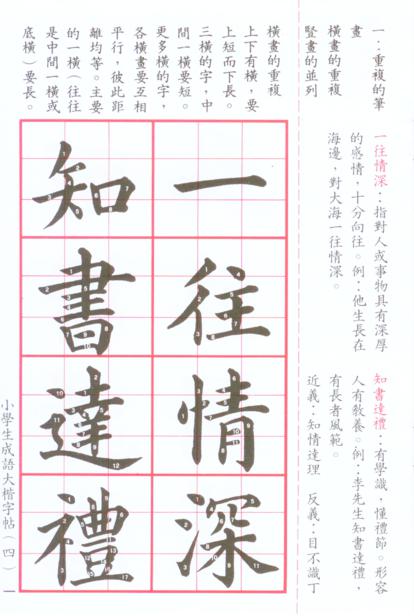 一：重複的筆
畫
橫畫的重複
豎畫的並列
橫畫的重複
上下有橫，要
上短而下長。
三橫的字，中
間一橫要短。
更多橫的字，
各橫畫要互相
平行，彼此距
離均等。主要
的一橫（往往
是中間一橫或
底橫）要長。
一往情深：指對人或事物具有深厚
的感情，十分向往。例：他生長在
海邊，對大海一往情深。
知書達禮：有學識，懂禮節。形容
人有教養。例：李先生知書達禮，
有長者風範。
近義：知情達理 反義：目不識丁
一往情深
知書達禮
小學生成語大楷字帖（四） 一